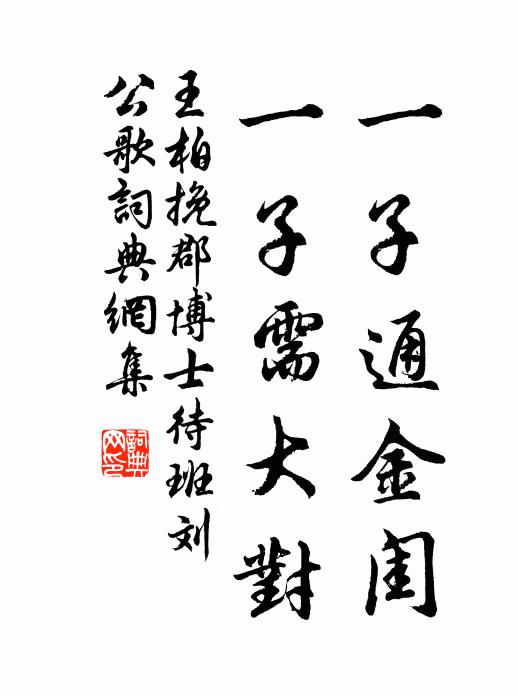 一子通金闺
一子需大對
王柏挽郡博士待班刘
公歌詞典網集
詞典
网印